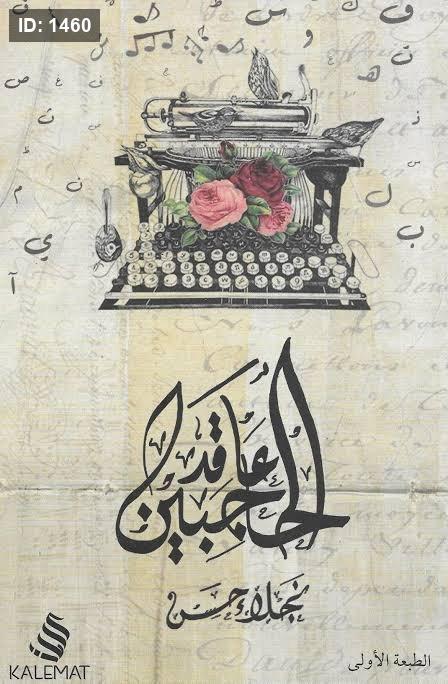 ID: 1460
عاقد
الحاجبين
نجلاء حسن
KALEMAT
الطبعة الأولى